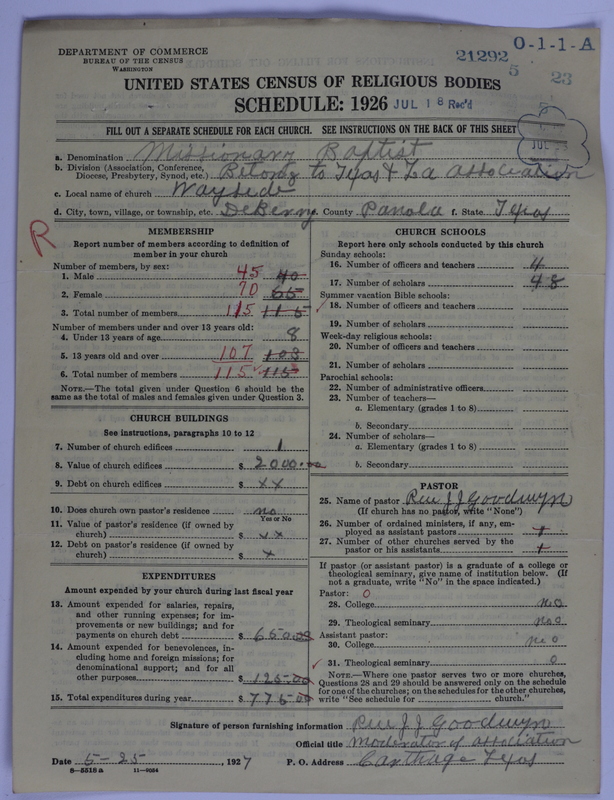 DEPARTMENT OF COMMERCE
BUREAU OF THE CENSUS
WASHINGTON
21292
O-1-1-A
5
23
UNITED STATES CENSUS OF RELIGIOUS BODIES
SCHEDULE: 1926
JUL 18 Rec'd
FILL OUT A SEPARATE SCHEDULE FOR EACH CHURCH. SEE INSTRUCTIONS ON THE BACK OF THIS SHEET
JUL
a. Denomination Missionary Baptist
b. Division (Association, Conference, Diocese, Presbytery, Synod, etc.) Belong to Texas & La association
c. Local name of church Wayside
d. City, town, village, or township, etc. DeBerry e. County Panola f. State Texas
R
MEMBERSHIP
Report number of members according to definition of
member in your church
Number of members, by sex:
1. Male 45 40
2. Female 70 65
3. Total number of members 115 115
Number of members under and over 13 years old:
4. Under 13 years of age 8
5. 13 years old and over 107 103
6. Total number of members 115 115
NOTE.—The total given under Question 6 should be the
same as the total of males and females given under Question 3.
CHURCH BUILDINGS
See instructions, paragraphs 10 to 12
7. Number of church edifices 1
8. Value of church edifices $ 2000.00
9. Debt on church edifices $ xx
10. Does church own pastor's residence no
Yes or No
11. Value of pastor's residence (if owned by
church) $ xx
12. Debt on pastor's residence (if owned by
church) $ x
EXPENDITURES
Amount expended by your church during last fiscal year
13. Amount expended for salaries, repairs,
and other running expenses; for im-
provements or new buildings; and for
payments on church debt $ 650.00
14. Amount expended for benevolences, in-
cluding home and foreign missions; for
denominational support; and for all
other purposes $ 125.00
15. Total expenditures during year $ 775.00
CHURCH SCHOOLS
Report here only schools conducted by this church
Sunday schools:
16. Number of officers and teachers 4
17. Number of scholars 48
Summer vacation Bible schools:
18. Number of officers and teachers
19. Number of scholars
Week-day religious schools:
20. Number of officers and teachers
21. Number of scholars
Parochial schools:
22. Number of administrative officers
23. Number of teachers—
a. Elementary (grades 1 to 8)
b. Secondary
24. Number of scholars—
a. Elementary (grades 1 to 8)
b. Secondary
PASTOR
25. Name of pastor Rev J J Goodwyn
(If church has no pastor, write "None")
26. Number of ordained ministers, if any, em-
ployed as assistant pastors
27. Number of other churches served by the
pastor or his assistants
If pastor (or assistant pastor) is a graduate of a college or
theological seminary, give name of institution below. (If
not a graduate, write "No" in the space indicated.)
Pastor: 0
28. College no
29. Theological seminary no
Assistant pastor:
30. College no
31. Theological seminary 0
NOTE.—Where one pastor serves two or more churches,
Questions 28 and 29 should be answered only on the schedule
for one of the churches; on the schedules for the other churches,
write "See schedule for church."
Signature of person furnishing information Rev J J Goodwyn
Official title Moderator of association
Date 5-25, 1927 P. O. Address Carthage Texas
8-5518a 11-9054